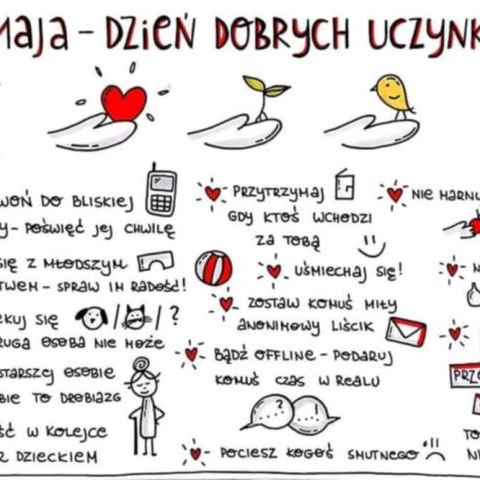 MAJA - DZIEŃ DOBRYCH UCZYNK
WOŃ DO BLISKIEJ
Y - POŚWIĘĆ JEJ CHWILĘ
SIĘ Z MŁODSZYM
TWEM - SPRAW IM RADOŚĆ!
EKUJ SIĘ / / ?
RUGA OSOBA NIE MOŻE
STARSZEJ OSOBIE
BIE TO DROBIAZG
ŚĆ W KOLEJCE
Z DZIECKIEM
PRZYTRZYMAJ
GDY KTOŚ WCHODZI
ZA TOBĄ
UŚMIECHAJ SIĘ!
ZOSTAW KOMUŚ MIŁY
ANONIMOWY LIŚCIK
BĄDŹ OFFLINE - PODARUJ
KOMUŚ CZAS W REALU
...? ...!
POCIESZ KOGOŚ SMUTNEGO
NIE MARNU
N
PRZE
TO
NI